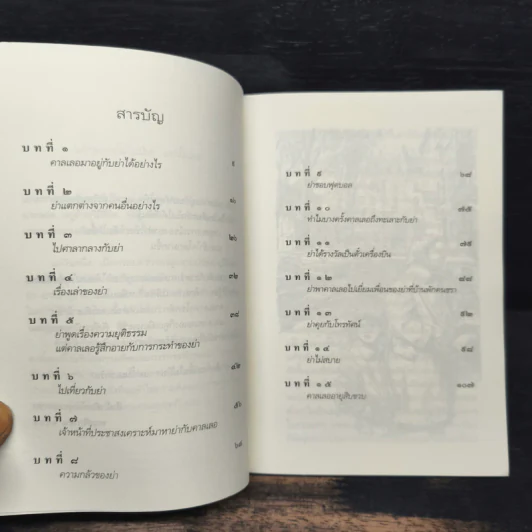 สารบัญ
บทที่ ๑
คาลเลอมาอยู่กับย่าได้อย่างไร
บทที่ ๒
ย่าแตกต่างจากคนอื่นอย่างไร
บทที่ ๓
ไปศาลากลางกับย่า
บทที่ ๔
เรื่องเล่าของย่า
บทที่ ๕
ย่าพูดเรื่องความยุติธรรม
แต่คาลเลอรู้สึกอายกับการกระทำของย่า
บทที่ ๖
ไปเที่ยวกับย่า
บทที่ ๗
เจ้าหน้าที่ประชาสงเคราะห์มาหาย่ากับคาลเลอ
บทที่ ๘
ความกลัวของย่า
บทที่ ๙
ย่าชอบฟุตบอล
บทที่ ๑๐
ทำไมบางครั้งคาลเลอถึงทะเลาะกับย่า
บทที่ ๑๑
ย่าได้รางวัลเป็นตั๋วเครื่องบิน
บทที่ ๑๒
ย่าพาคาลเลอไปเยี่ยมเพื่อนของย่าที่บ้านพักคนชรา
บทที่ ๑๓
ย่าคุยกับโทรทัศน์
บทที่ ๑๔
ย่าไม่สบาย
บทที่ ๑๕
คาลเลออายุสิบขวบ